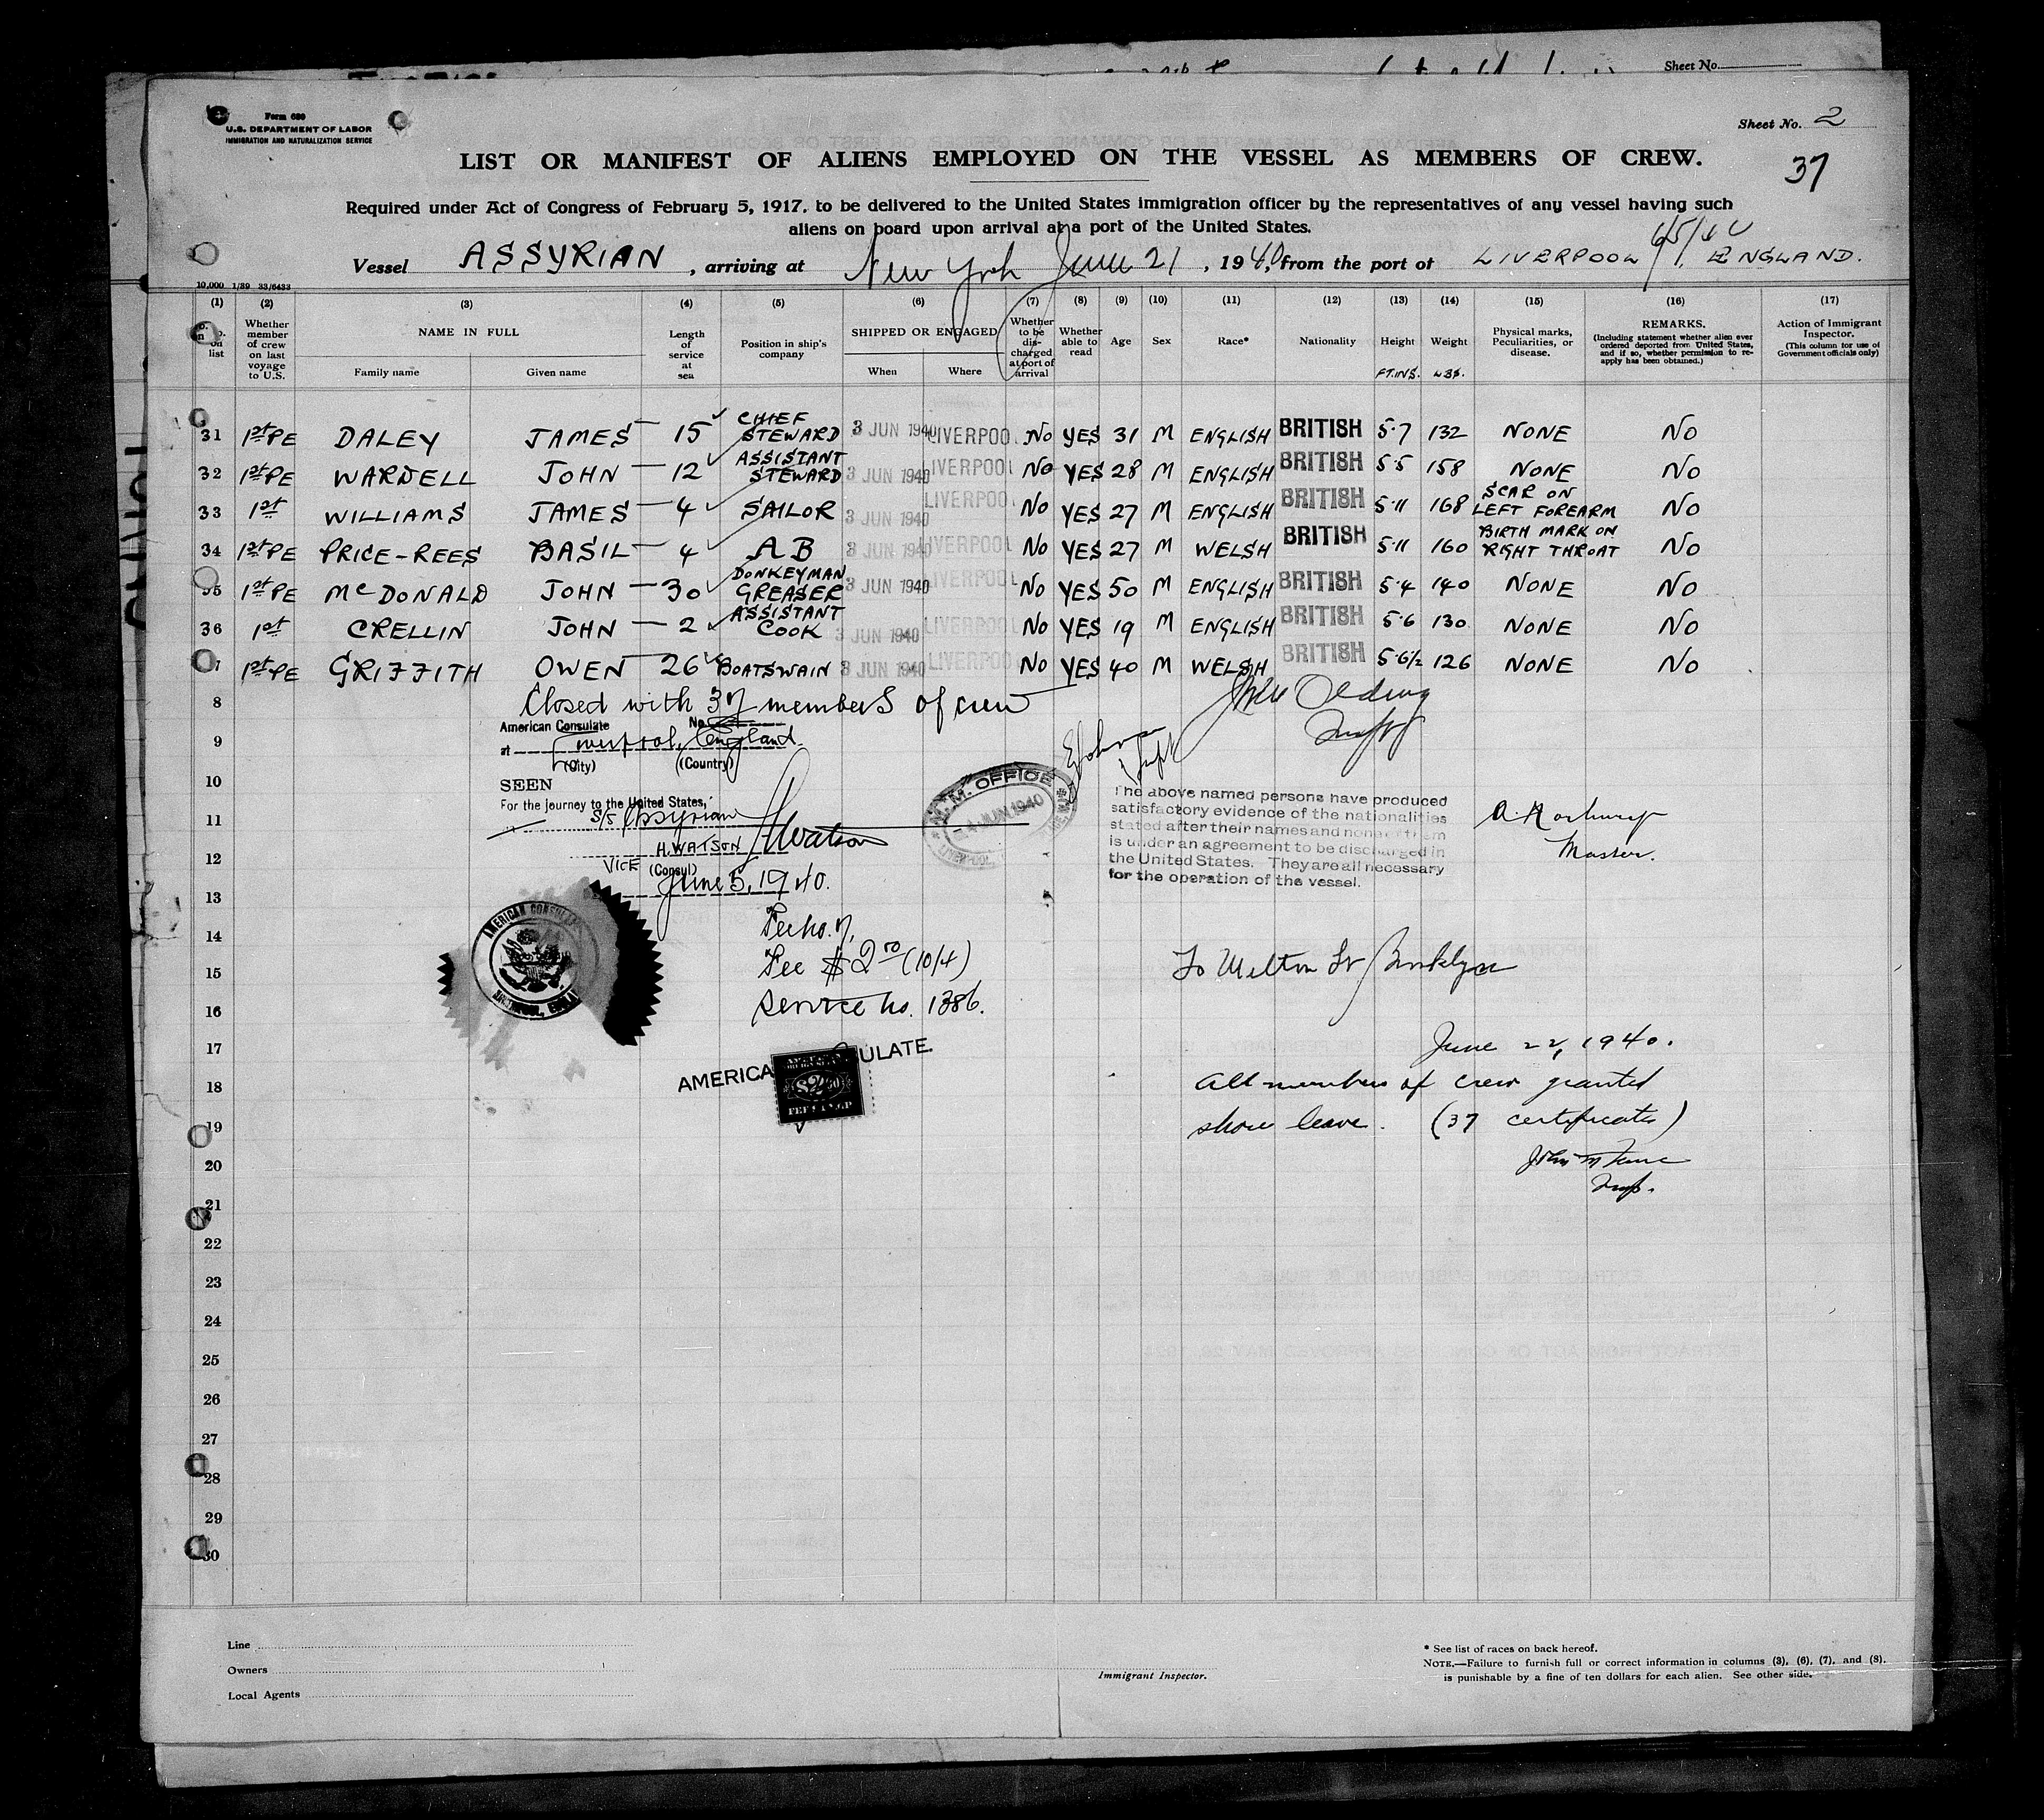 Sheet No.
Form 680
U.S. DEPARTMENT OF LABOR
IMMIGRATION AND NATURALIZATION SERVICE
Sheet No. 2
37
LIST OR MANIFEST OF ALIENS EMPLOYED ON THE VESSEL AS MEMBERS OF CREW.
Required under Act of Congress of February 5, 1917, to be delivered to the United States immigration officer by the representatives of any vessel having such
aliens on board upon arrival at a port of the United States.
Vessel ASSYRIAN, arriving at New York June 21, 1940, from the port of LIVERPOOL, ENGLAND.
6/5/40
10,000 1/39 33/6433
(1) (2) (3) (4) (5) (6) (7) (8) (9) (10) (11) (12) (13) (14) (15) (16) (17)
No. on list
Whether member of crew on last voyage to U.S.
NAME IN FULL
Family name Given name
Length of service at sea
Position in ship's company
SHIPPED OR ENGAGED
When Where
Whether to be discharged at port of arrival
Whether able to read
Age
Sex
Race*
Nationality
Height FT.INS.
Weight LBS.
Physical marks, Peculiarities, or disease.
REMARKS.
(Including statement whether alien ever ordered deported from United States, and if so, whether permission to re-apply has been obtained.)
Action of Immigrant Inspector.
(This column for use of Government officials only)
31 1st PE DALEY JAMES 15 CHIEF STEWARD 3 JUN 1940 LIVERPOOL No YES 31 M ENGLISH BRITISH 5·7 132 NONE NO
32 1st PE WARDELL JOHN 12 ASSISTANT STEWARD 3 JUN 1940 LIVERPOOL No YES 28 M ENGLISH BRITISH 5·5 158 NONE NO
33 1st WILLIAMS JAMES 4 SAILOR 3 JUN 1940 LIVERPOOL No YES 27 M ENGLISH BRITISH 5·11 168 SCAR ON LEFT FOREARM NO
34 1st PE PRICE-REES BASIL 4 AB 3 JUN 1940 LIVERPOOL No YES 27 M WELSH BRITISH 5·11 160 BIRTH MARK ON RIGHT THROAT NO
35 1st PE McDONALD JOHN 30 DONKEYMAN GREASER 3 JUN 1940 LIVERPOOL No YES 50 M ENGLISH BRITISH 5·4 140 NONE NO
36 1st CRELLIN JOHN 2 ASSISTANT COOK 3 JUN 1940 LIVERPOOL No YES 19 M ENGLISH BRITISH 5·6 130 NONE NO
37 1st PE GRIFFITH OWEN 26 BOATSWAIN 3 JUN 1940 LIVERPOOL No YES 40 M WELSH BRITISH 5·6½ 126 NONE NO
8 Closed with 37 members of crew
American Consulate No.
9 at Liverpool, England.
(City) (Country)
10 SEEN
For the journey to the United States,
11 S/S Assyrian
HWatson
12 H. WATSON
VICE (Consul)
13 June 5, 1940.
M.M. OFFICE
4 JUN 1940
LIVERPOOL
The above named persons have produced
satisfactory evidence of the nationalities
stated after their names and none of them
is under an agreement to be discharged in
the United States. They are all necessary
for the operation of the vessel.
Master.
AMERICAN CONSULATE
14
Fee $2.00 (10/4)
15
Service No. 1386.
16
To Milton St Brooklyn
17
AMERICA ULATE.
$2.00
FEE STAMP
June 22, 1940.
18 All members of crew granted
19 shore leave. (37 certificates)
20
Insp.
21
22
23
24
25
26
27
28
29
30
Line
Owners
Local Agents
Immigrant Inspector.
* See list of races on back hereof.
NOTE.—Failure to furnish full or correct information in columns (3), (6), (7), and (8),
is punishable by a fine of ten dollars for each alien. See other side.